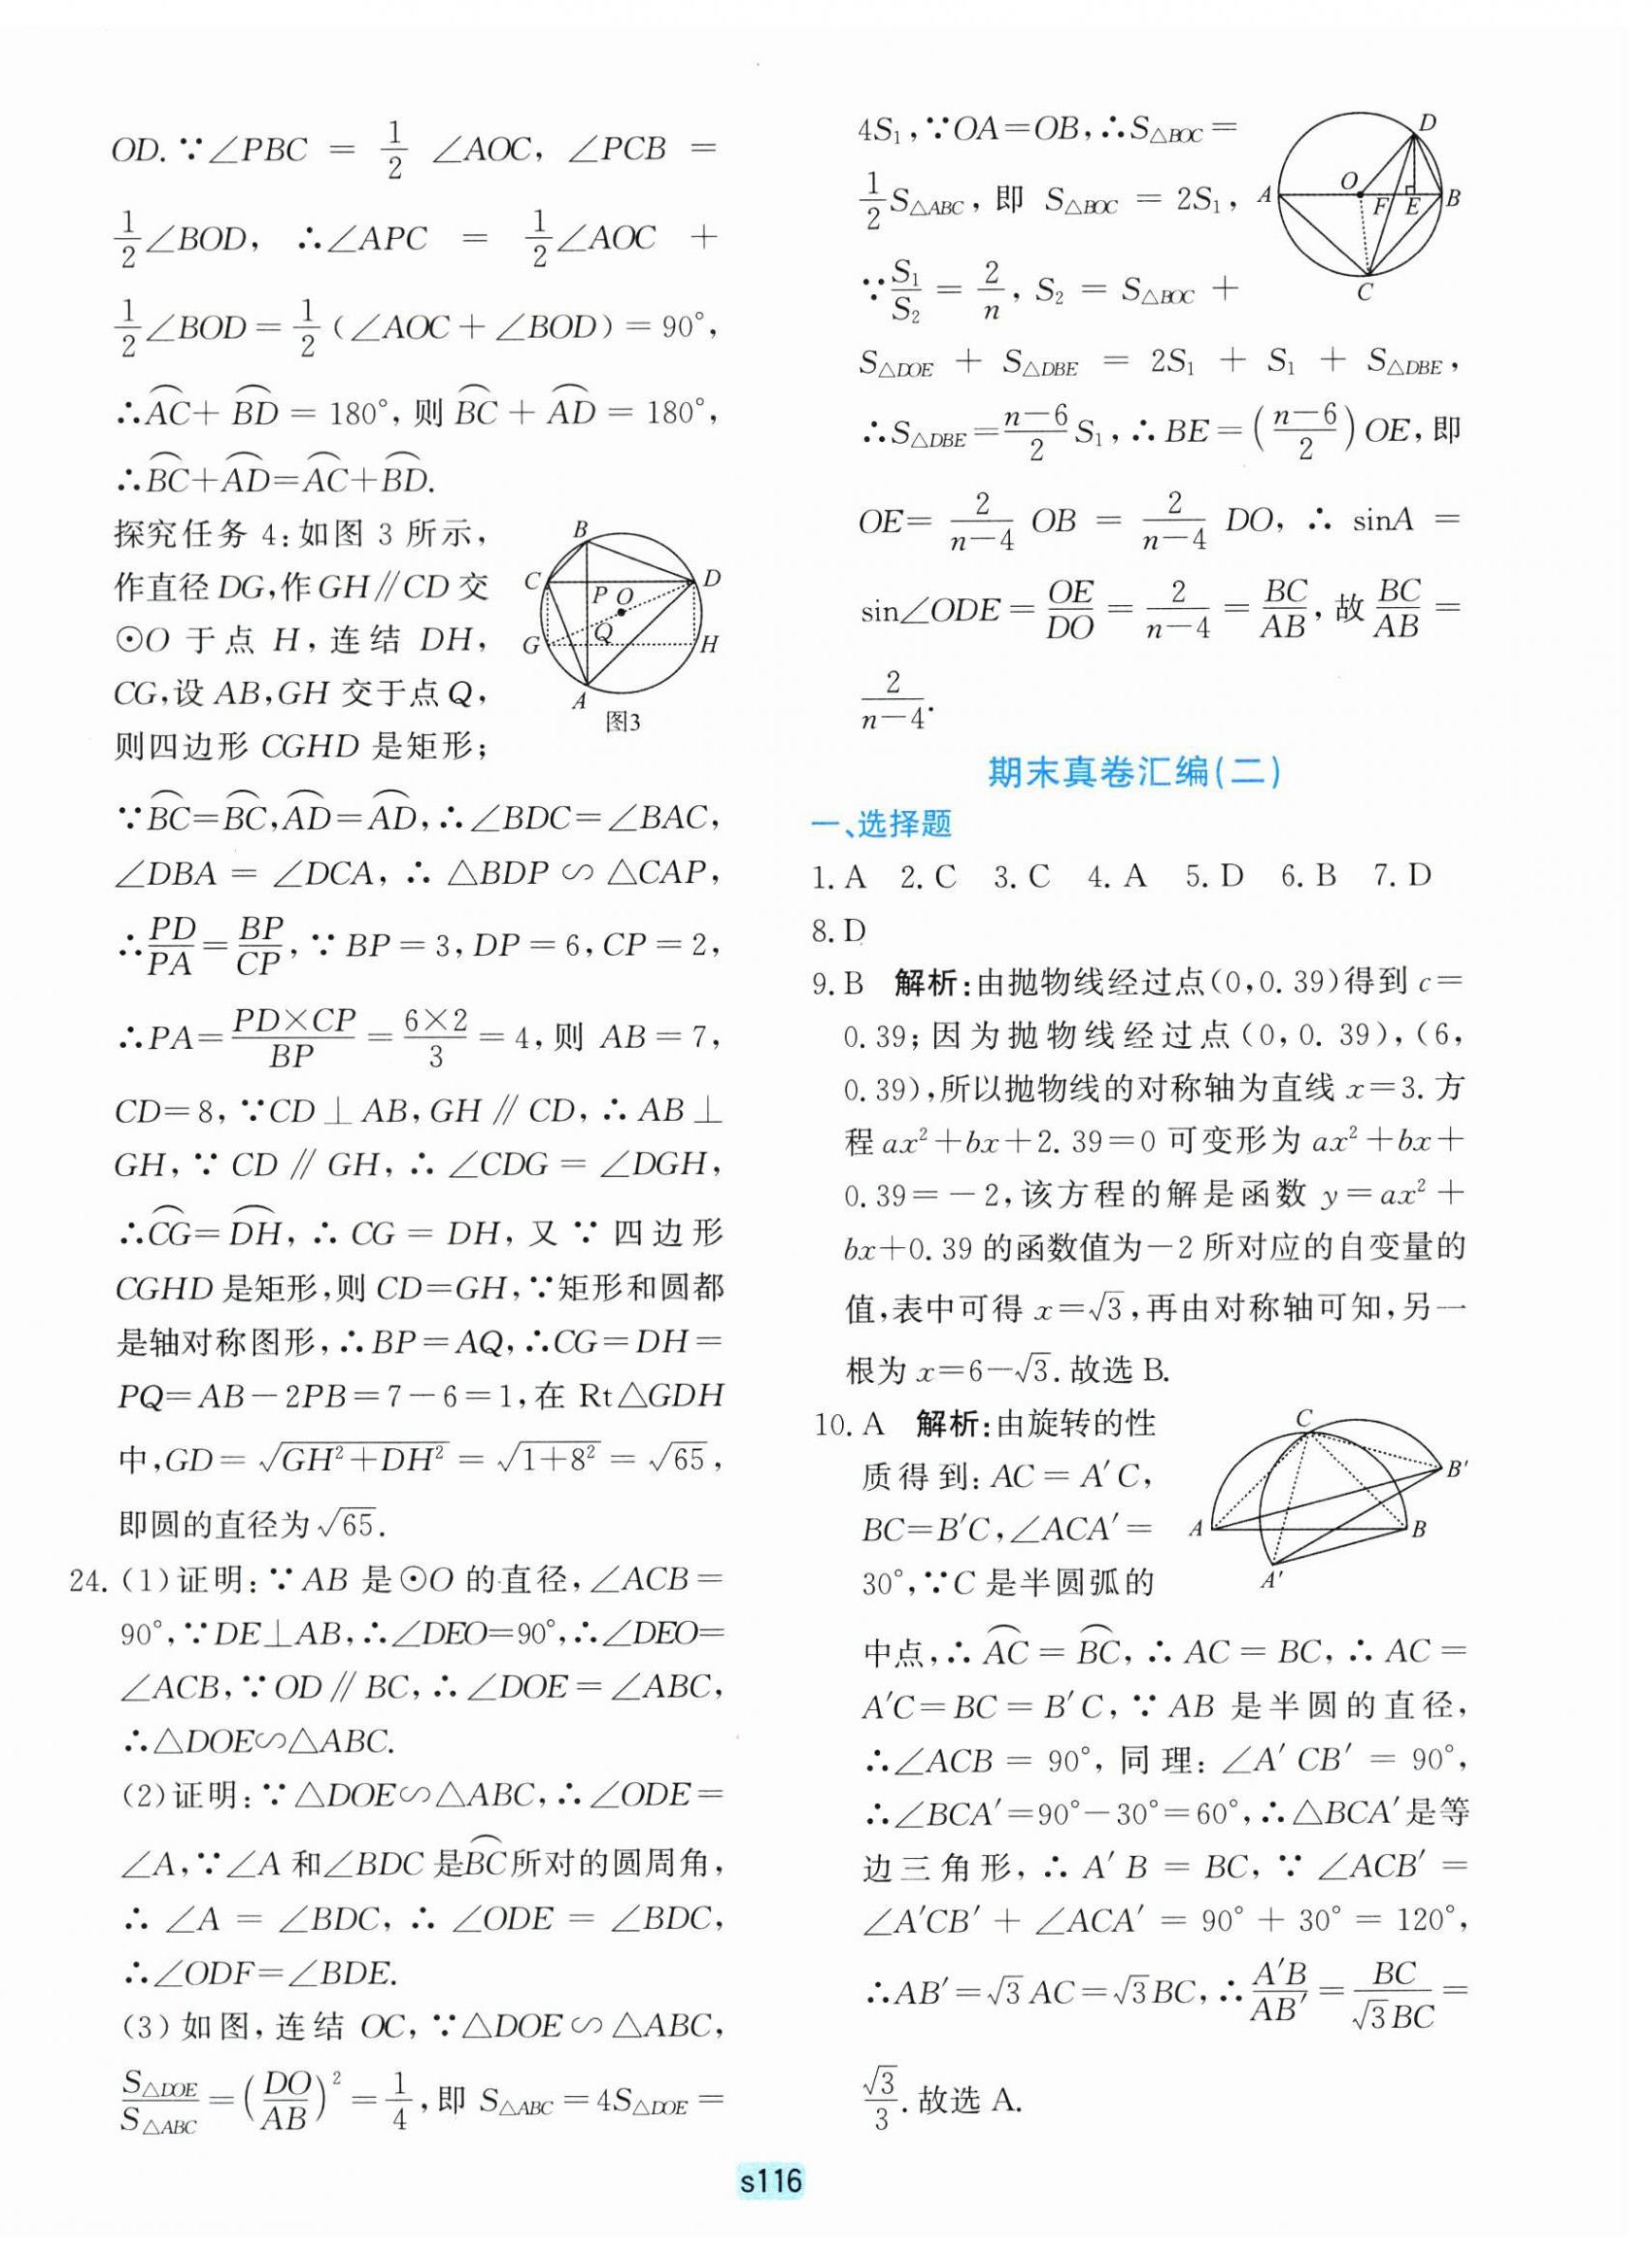 OD. ∵∠PBC = 1/2 ∠AOC, ∠PCB =
1/2∠BOD, ∴∠APC = 1/2∠AOC +
1/2∠BOD = 1/2(∠AOC + ∠BOD) = 90°,
∴⌒AC + ⌒BD = 180°, 则 ⌒BC + ⌒AD = 180°,
∴⌒BC+⌒AD=⌒AC+⌒BD.
探究任务 4:如图 3 所示,
作直径 DG,作 GH∥CD 交
⊙O 于点 H,连结 DH,
CG,设 AB,GH 交于点 Q,
则四边形 CGHD 是矩形;
B
C
D
P
O
Q
G
H
A
图3
∵⌒BC=⌒BC,⌒AD=⌒AD,∴∠BDC=∠BAC,
∠DBA = ∠DCA, ∴ △BDP ∽ △CAP,
∴PD/PA = BP/CP, ∵ BP = 3, DP = 6, CP = 2,
∴PA = (PD×CP)/BP = (6×2)/3 = 4, 则 AB = 7,
CD=8, ∵CD⊥AB, GH∥CD, ∴AB⊥
GH, ∵ CD∥GH, ∴ ∠CDG = ∠DGH,
∴⌒CG=⌒DH, ∴ CG = DH, 又 ∵ 四边形
CGHD 是矩形,则 CD=GH,∵矩形和圆都
是轴对称图形,∴BP=AQ,∴CG=DH=
PQ=AB-2PB=7-6=1,在 Rt△GDH
中,GD= √(GH²+DH²) = √(1+8²) = √65,
即圆的直径为√65.
24. (1)证明:∵AB 是⊙O 的直径,∠ACB=
90°,∵DE⊥AB,∴∠DEO=90°,∴∠DEO=
∠ACB,∵OD∥BC,∴∠DOE=∠ABC,
∴△DOE∽△ABC.
(2)证明:∵△DOE∽△ABC,∴∠ODE=
∠A,∵∠A 和∠BDC 是⌒BC所对的圆周角,
∴ ∠A = ∠BDC, ∴ ∠ODE = ∠BDC,
∴∠ODF=∠BDE.
(3) 如图, 连结 OC, ∵△DOE∽△ABC,
S△DOE/S△ABC = (DO/AB)² = 1/4, 即 S△ABC = 4S△DOE =
4S₁, ∵OA=OB, ∴S△BOC =
1/2 S△ABC, 即 S△BOC = 2S₁,
∵S₁/S₂ = 2/n, S₂ = S△BOC +
D
O
A
F
E
B
C
S△DOE + S△DBE = 2S₁ + S₁ + S△DBE,
∴S△DBE = (n-6)/2 S₁, ∴BE = ((n-6)/2) OE, 即
OE = 2/(n-4) OB = 2/(n-4) DO, ∴ sinA =
sin∠ODE = OE/DO = 2/(n-4) = BC/AB, 故 BC/AB =
2/(n-4).
期末真卷汇编(二)
一、选择题
1. A 2. C 3. C 4. A 5. D 6. B 7. D
8. D
9. B 解析:由抛物线经过点(0,0.39)得到 c=
0.39;因为抛物线经过点(0,0.39),(6,
0.39),所以抛物线的对称轴为直线 x=3. 方
程 ax²+bx+2.39=0 可变形为 ax²+bx+
0.39=-2,该方程的解是函数 y=ax²+
bx+0.39 的函数值为-2 所对应的自变量的
值,表中可得 x=√3,再由对称轴可知,另一
根为 x=6-√3. 故选 B.
10. A 解析:由旋转的性
质得到:AC = A′C,
BC=B′C,∠ACA′=
30°,∵C 是半圆弧的
C
B′
A
B
A′
中点,∴⌒AC = ⌒BC, ∴ AC = BC, ∴ AC =
A′C=BC=B′C, ∵ AB 是半圆的直径,
∴∠ACB = 90°, 同理: ∠A′CB′ = 90°,
∴∠BCA′=90°-30°=60°,∴△BCA′是等
边三角形, ∴ A′B = BC, ∵ ∠ACB′ =
∠A′CB′ + ∠ACA′ = 90° + 30° = 120°,
∴AB′=√3 AC=√3 BC, ∴A′B/AB′ = BC/(√3 BC) =
√3/3. 故选 A.
s116